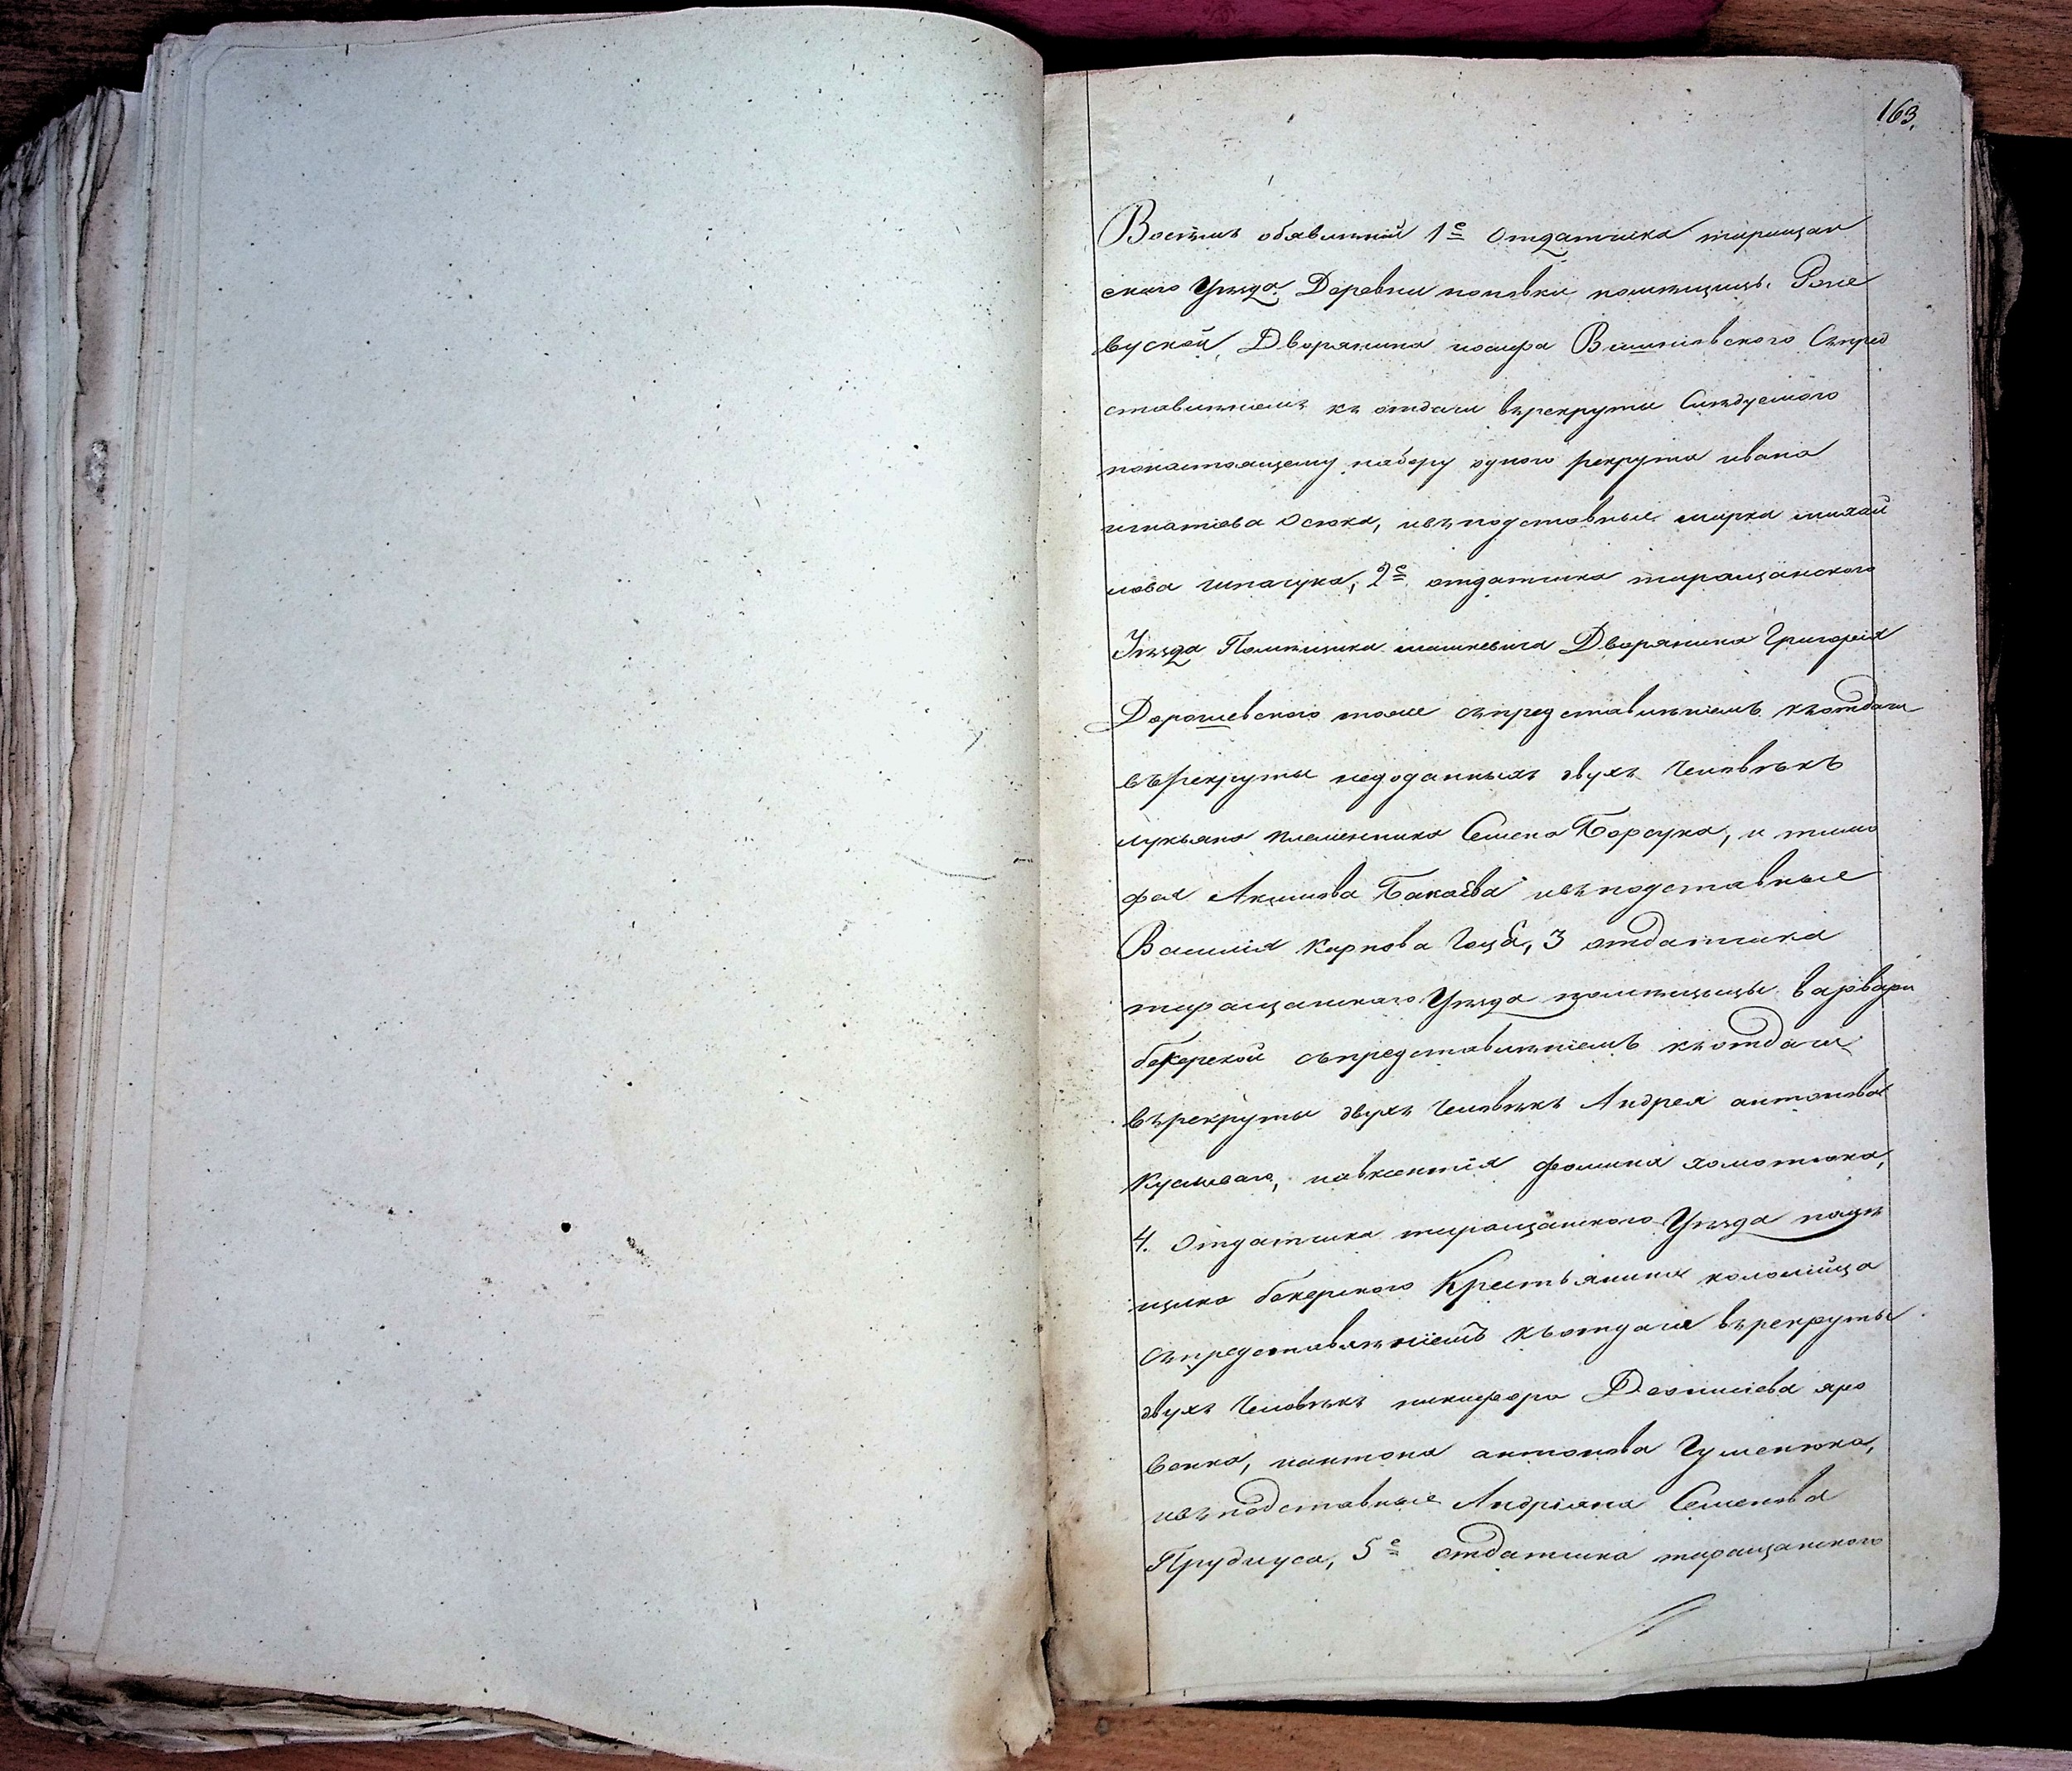 163.
обявлений 1е Отдатчика таращан
ского Уѣзда Деревни поповки помѣщицы Рже
вуской, Дворянина иосифа Вишнiовского Съпред
ставлѣниемъ къ отдачи върекруты Слѣдуемого
понастоящему набору одного рекрута ивана
игнатова Осюка, ивъподставные марка михай
лова шпачука, 2е отдатчика таращанского
Уѣзда Помѣщика Дворянина Григорiя
Дорошевского тоже съпредставлѣнiемъ къотдачи
въРекруты недоданныхъ двухъ человѣкъ
лукьяна племенника Семена Борсука, и тимо
фея Акимова Бакаева ивъподставные
Василiя карпова 3 отдатчика
таращанского Уѣзда помѣщицы варвары
съпредставлѣнiемъ къотдачи
върекруты двухъ человѣкъ Андрея антонова
иавксентiя фомина хомотюка,
4. Отдатчика таращанского Уѣзда помѣ
щика Крестьянина коломiйца
съпредставлѣнiемъ къотдачи върекруты
двухъ человѣкъ никифора Дѣонисiева яро
венка, иантона антонова Гуменюка,
ивъподставные Андрiяна Семенова
Прудиуса, 5е отдатчика таращанского